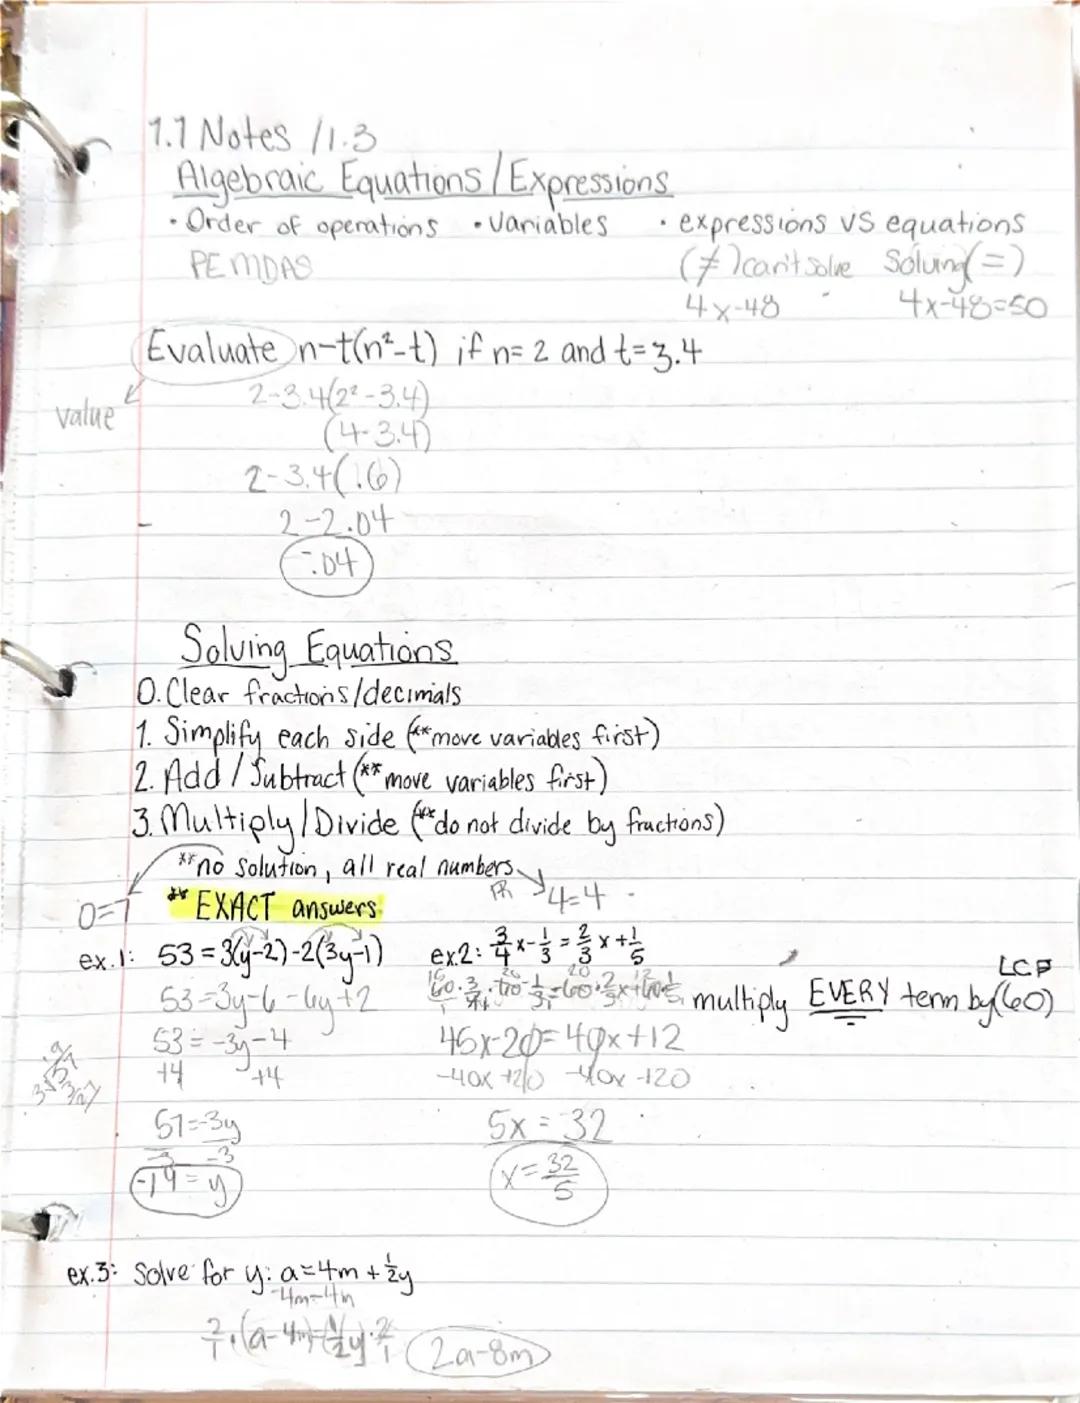 1.1 Notes /1.3
Algebraic Equations/Expressions
• Order of operations • Variables • expressions VS equations
PEMDAS (≠) can't solve Solving (=)
4x-48 4x-48=50
Evaluate n-t(n²-t) if n=2 and t=3.4
value
2-3.4(2²-3.4)
(4-3.4)
2-3.4(.6)
2-2.04
-.04
Solving Equations
0. Clear fractions/decimals
1. Simplify each side (**move variables first)
2. Add/Subtract (**move variables first)
3. Multiply/Divide (**do not divide by fractions)
**no solution, all real numbers
0=7 ** EXACT answers ℝ 4=4
ex.1: 53=3(y-2)-2(3y-1) ex.2: 3/4x-1/3=2/3x+1/5
LCD
53=3y-6-6y+2 60·3/4x-60·1/3=60·2/3x+60·1/5 multiply EVERY term by (60)
53=-3y-4 45x-20=40x+12
+4 +4 -40x +20 -40x +20
57=-3y 5x=32
-3 -3
-19=y x=32/5
ex.3: Solve for y: a=4m+1/2y
-4m -4m
2/1·(a-4m)=(1/2y)·2/1 2a-8m